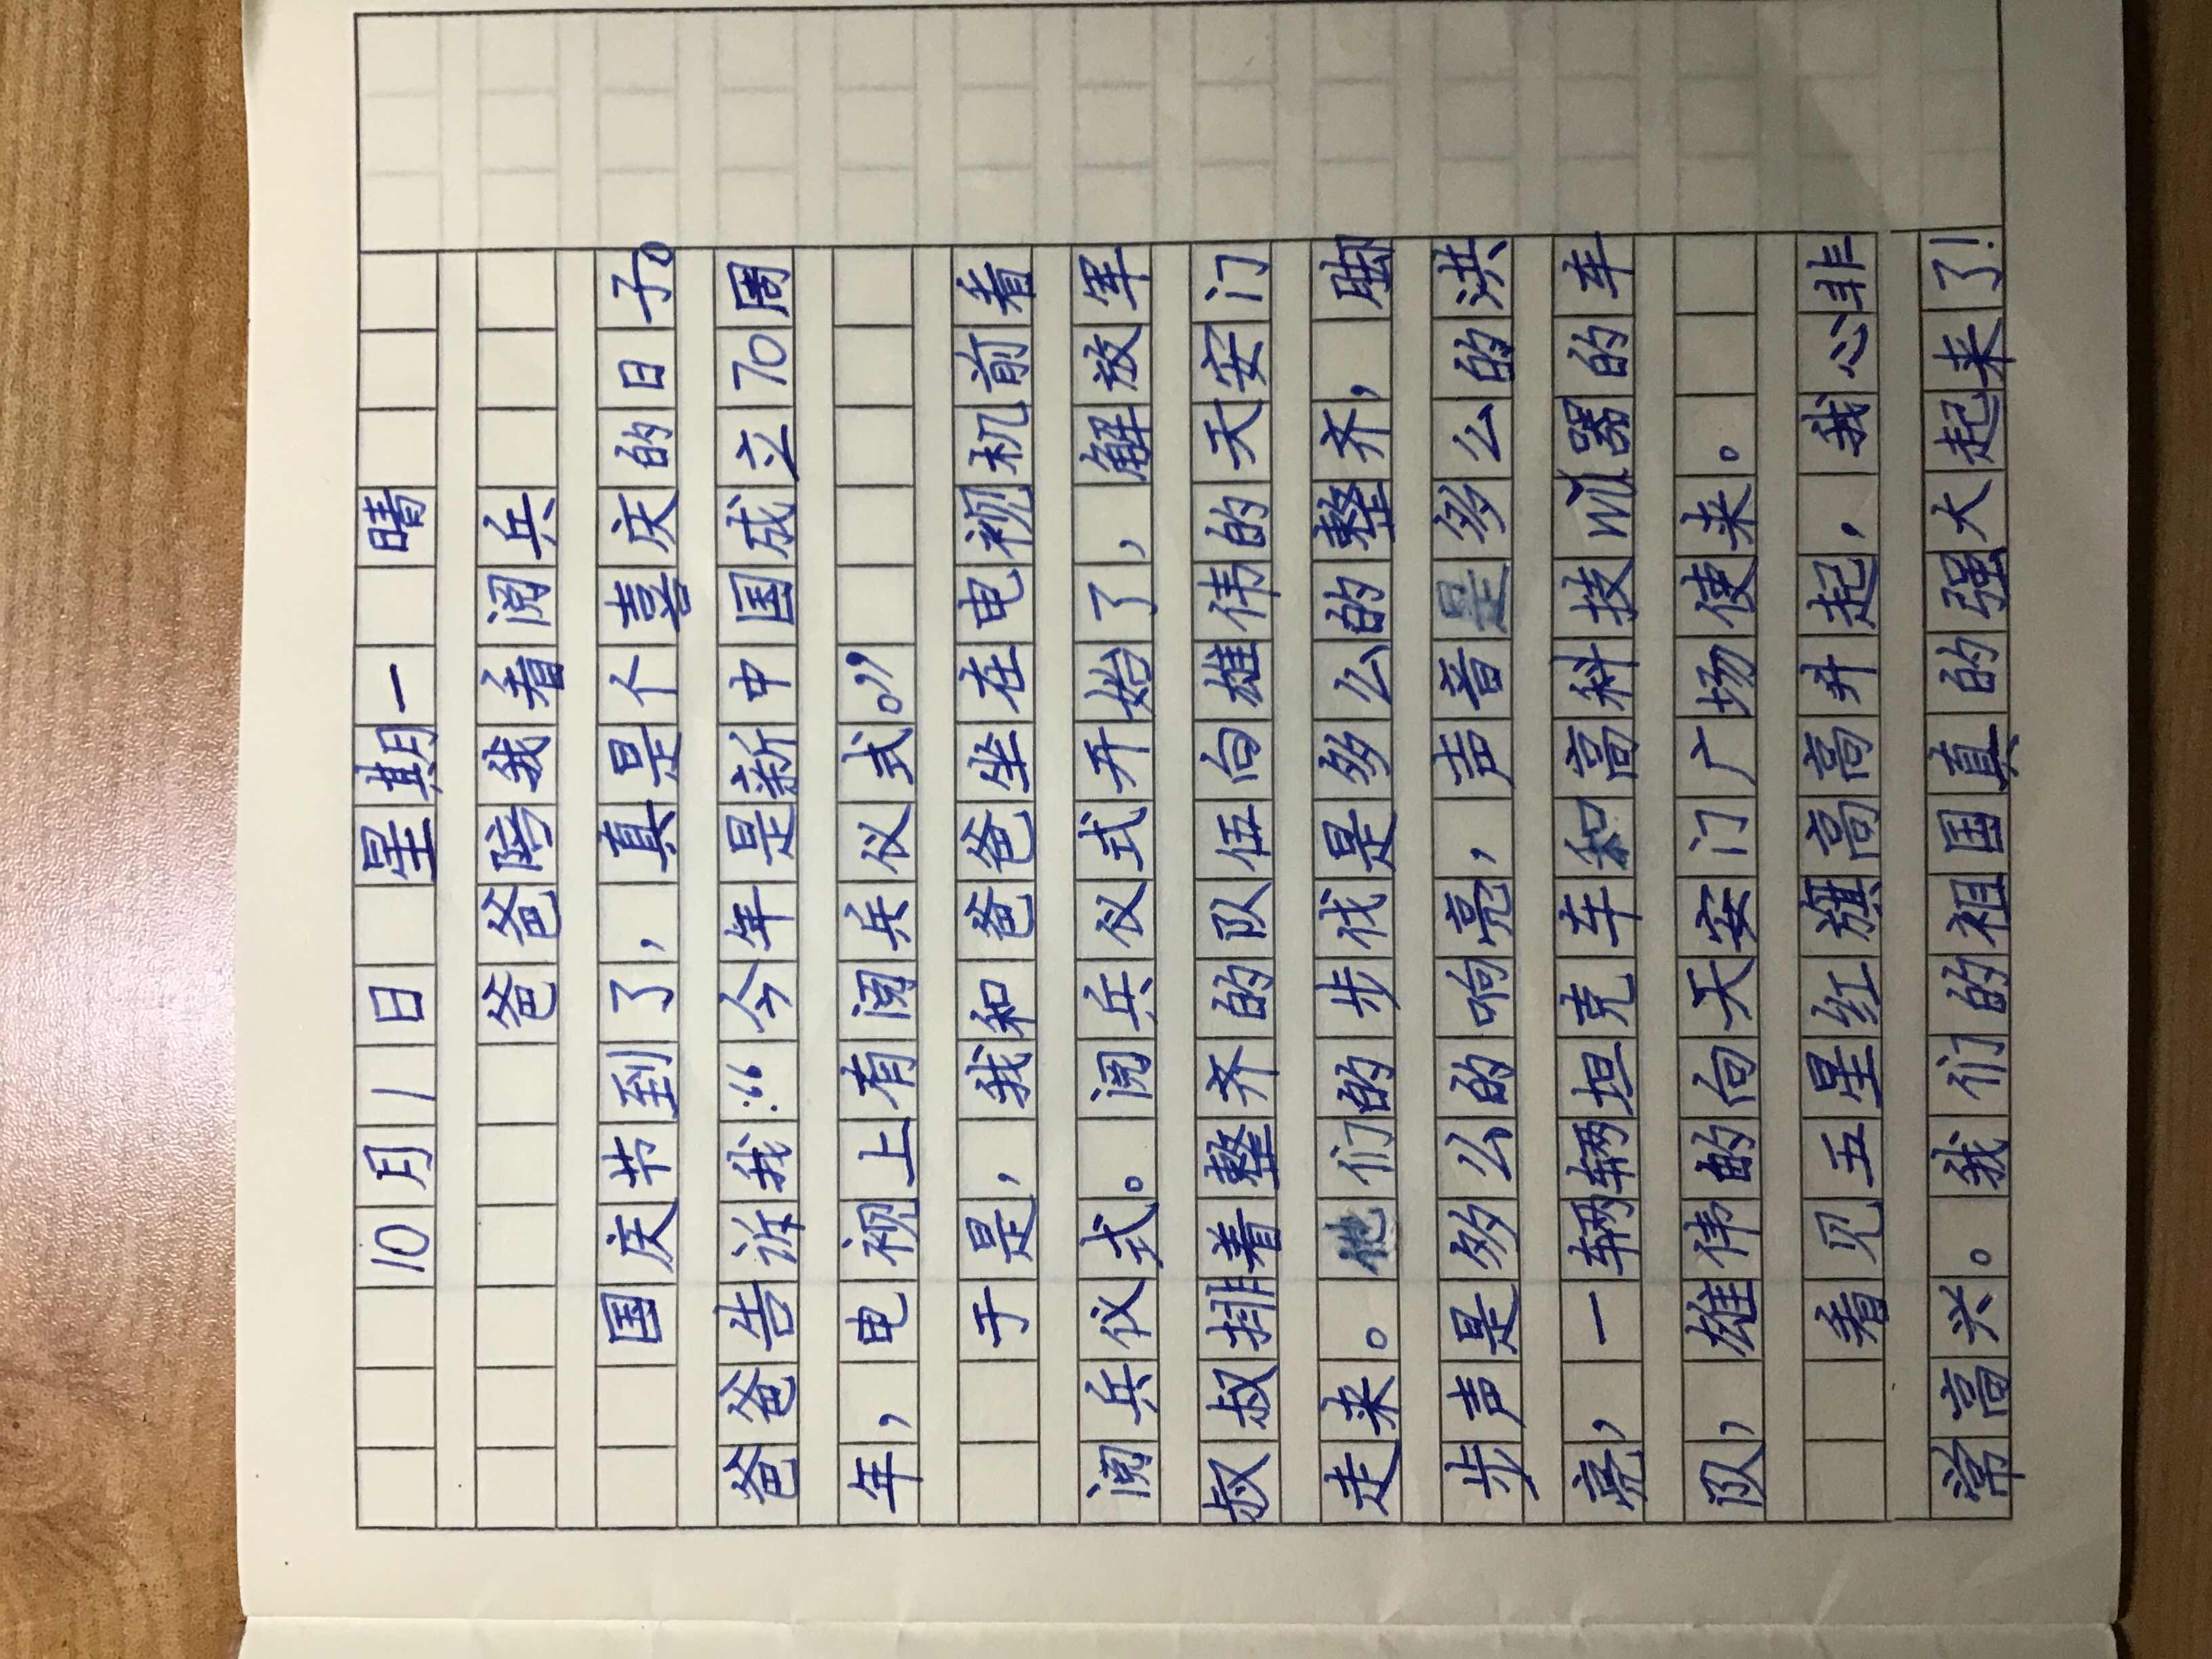 10月1日 星期一 晴
爸爸陪我看阅兵
国庆节到了，真是个喜庆的日子。
爸爸告诉我：“今年是新中国成立70周
年，电视上有阅兵仪式。”
于是，我和爸爸坐在电视机前看
阅兵仪式。阅兵仪式开始了，解放军
叔叔排着整齐的队伍向雄伟的天安门
走来。他们的步伐是多么的整齐，脚
步声是多么的响亮，声音是多么的洪
亮，一辆辆坦克车和高科技wǔ器的车
队，雄伟的向天安门广场使来。
看见五星红旗高高升起，我心非
常高兴。我们的祖国真的强大起来了！